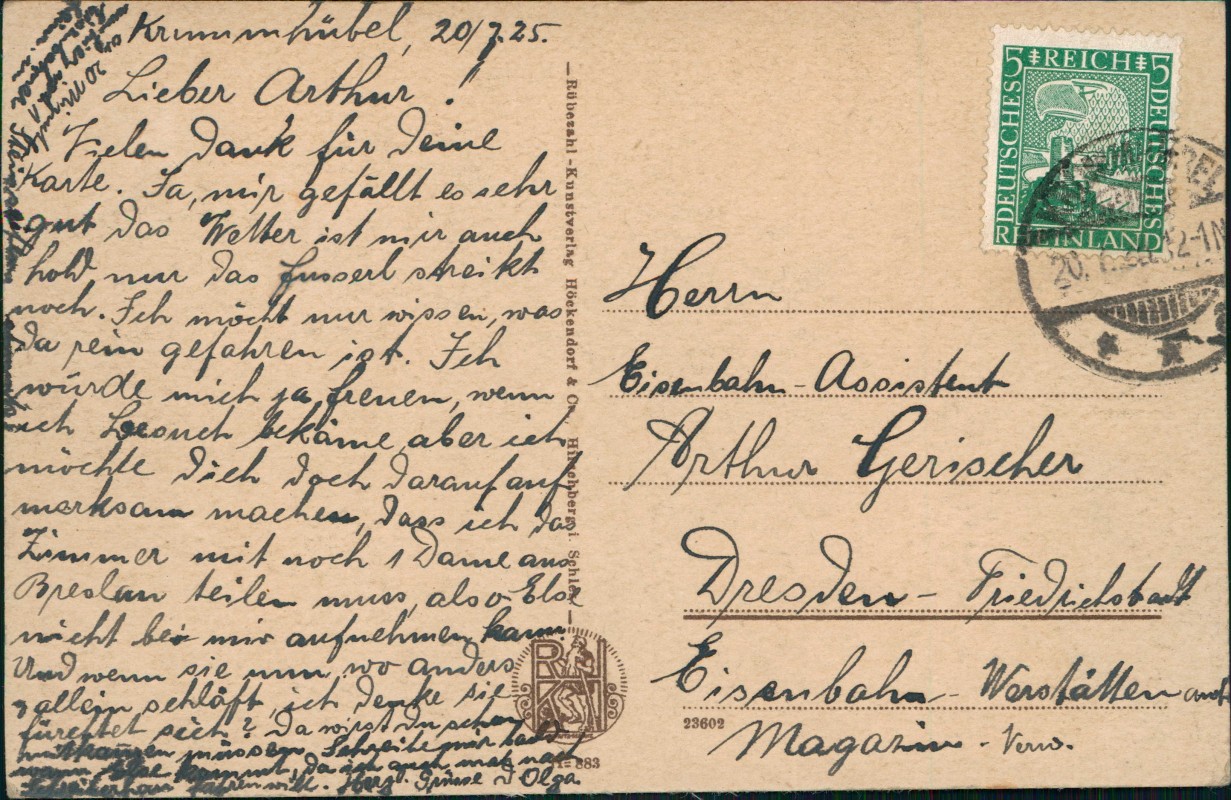 Krummhübel, 20/7.25.
Lieber Arthur!
Vielen Dank für Deine
Karte. Ja, mir gefällt es sehr
gut das Wetter ist mir auch
hold nur das Fusserl streikt
noch. Ich möcht nur wissen, was
da rein gefahren ist. Ich
würde mich ja freuen, wenn
ich Besuch bekäme, aber ich
möchte Dich doch darauf auf
merksam machen, dass ich das
Zimmer mit noch 1 Dame aus
Breslau teilen muss, also Else
nicht bei mir aufnehmen kann.
Und wenn sie nun wo anders
allein schläft, ich denke sie
fürchtet sich? Da wirst Du schon
müssen. Schreibe mir bald
wann Else kommt, da ich auch mal nach
Schreiberhau fahren will. Herz. Grüsse D. Olga
20 Minuten
— Rübezahl-Kunstverlag Höckendorf & Co., Hirschberg i. Schles. —
RKV
23602
883
5 REICH 5
DEUTSCHES
DEUTSCHES
RHEINLAND
20. 7. 12-1N
Herrn
Eisenbahn-Assistent
Arthur Gerischer
Dresden-Friedrichstadt
Eisenbahn-Werstätten amt
Magazin-Verw.